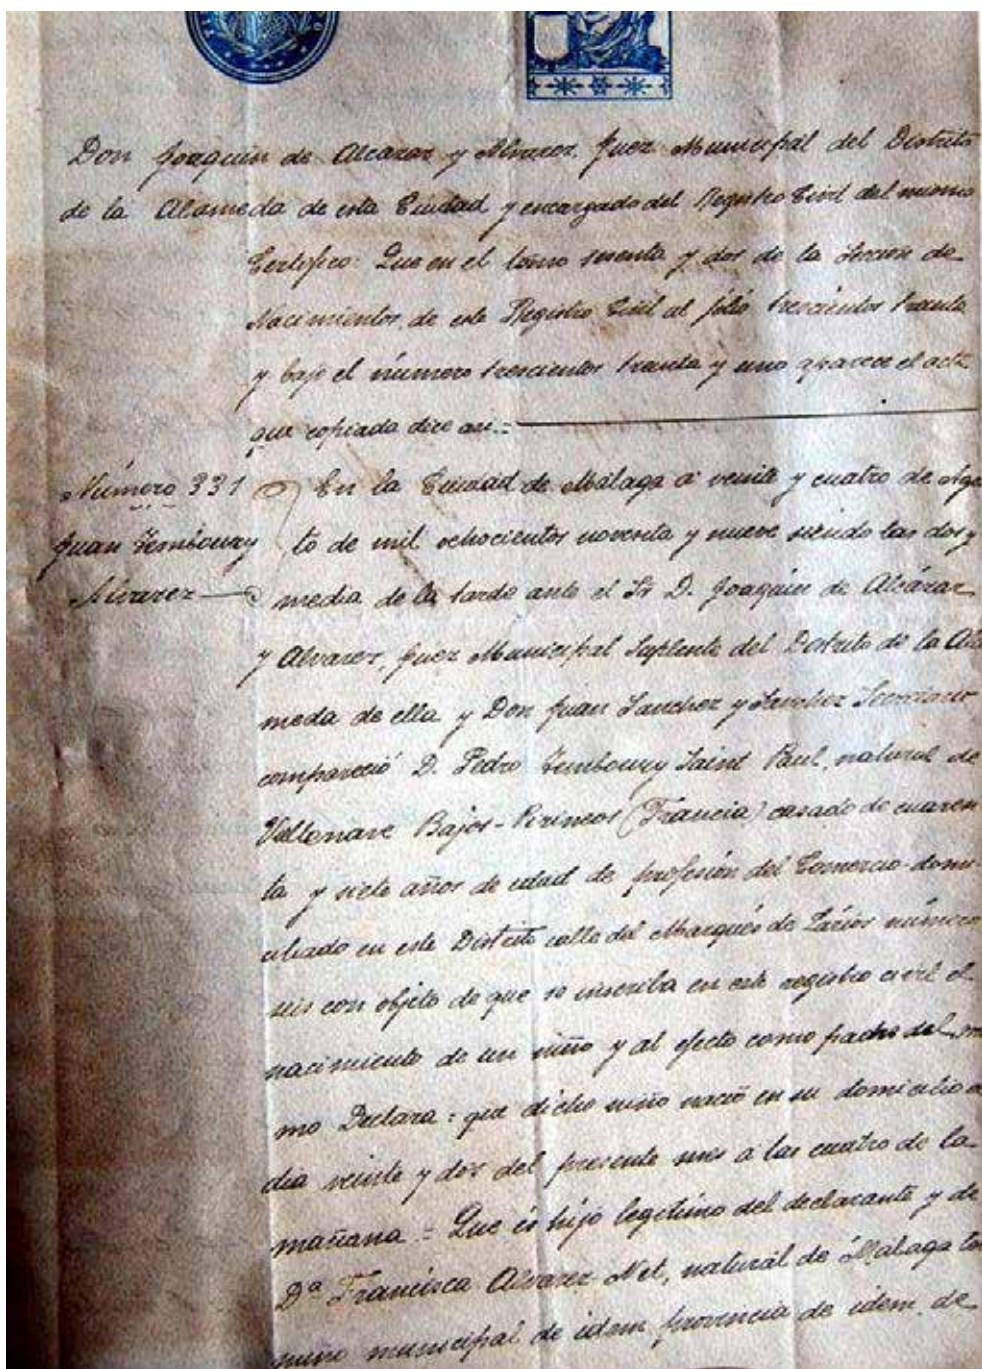 Don Joaquin de Alcazar y Alvarez, Juez Municipal del Distrito
de la Alameda de esta Ciudad y encargado del Registro Civil del mismo
Certifico: Que en el tomo sesenta y dos de la Seccion de
Nacimientos, de este Registro Civil al fólio trescientos treinta
y bajo el número trescientos treinta y uno aparece el acta
que copiada dice asi.=
Número 331 En la Ciudad de Málaga á veinte y cuatro de Agos
Juan Temboury to de mil ochocientos noventa y nueve siendo las dos y
Alvarez media de la tarde ante el Sr D. Joaquin de Alcázar
y Alvarez, Juez Municipal Suplente del Distrito de la Ala
meda de ella y Don Juan Sanchez y Sanchez Secretario
compareció D. Pedro Temboury Saint Paul, natural de
Villenave Bajos-Pirineos (Francia) casado de cuaren
ta y siete años de edad de profesión del Comercio domi
ciliado en este Distrito calle del Marqués de Lários número
seis con objeto de que se inscriba en este registro civil el
nacimiento de un niño y al efecto como padre del mis
mo Declara: que dicho niño nació en su domicilio el
dia veinte y dos del presente mes a las cuatro de la
mañana.= Que es hijo legitimo del declarante y de
Dª Francisca Alvarez Net, natural de Málaga tér
mino municipal de idem provincia de idem, de